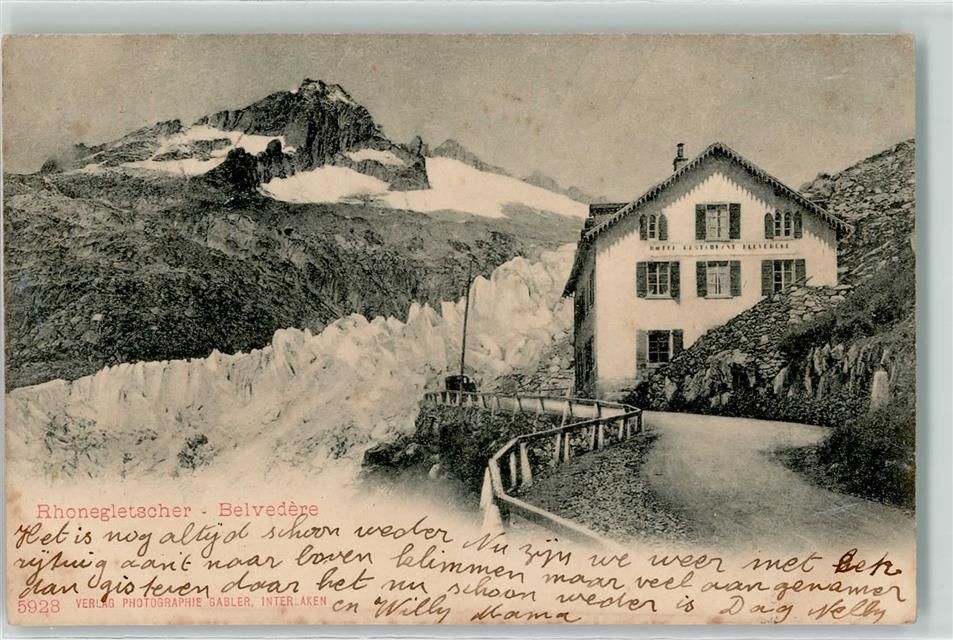 HOTEL RESTAURANT BELVEDERE
Rhonegletscher - Belvedère
Het is nog altijd schoon weder Nu zijn we weer met
rijtuig aan't naar boven klimmen maar veel aangenamer
dan gisteren daar het nu schoon weder is Dag Nelly
en Willy Mama
5928 VERLAG PHOTOGRAPHIE GABLER, INTERLAKEN